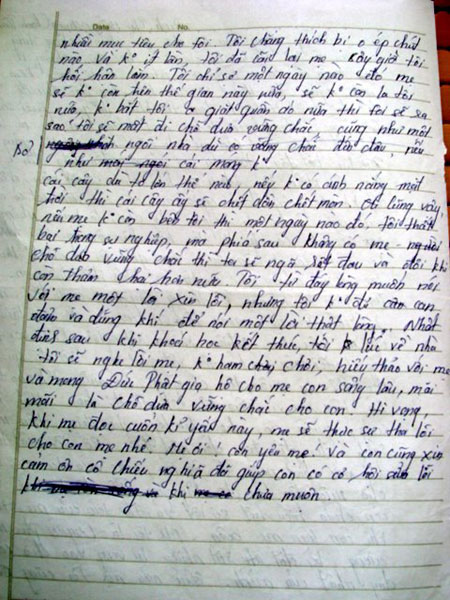 Date No
nhiều mục tiêu cho tôi. Tôi chẳng thích bị o ép chút
nào, và k° ít lần, tôi đã cãi lại mẹ - bây giờ tôi
hối hận lắm. Tôi chỉ sợ một ngày nào đó mẹ
sẽ k° còn trên thế gian này nữa, sẽ k° còn la tôi
nữa, k° bắt tôi giặt quần áo nữa thì tôi sẽ ra
sao tôi sẽ mất đi chỗ dựa vững chắc, cũng như một
ngôi nhà dù có vững chãi đến đâu, nếu
như cái móng k°
cái cây dù to lớn thế nào, nếu k° có ánh nắng mặt
trời thì cái cây ấy sẽ chết dần chết mòn. cũng vậy,
nếu mẹ k° còn bên tôi thì một ngày nào đó, tôi thất
bại trong sự nghiệp, mà phía sau không có mẹ - người
chỗ dựa vững chãi thì tôi sẽ ngã rất đau và đôi khi
còn thảm hại hơn nữa. Tôi từ đáy lòng muốn nói
với mẹ một lời xin lỗi, nhưng tôi k° đủ can
đảm và dũng khí để nói một lời thật lòng. Nhất
định sau khi khoá học kết thúc, tôi về nhà
tôi sẽ nghe lời mẹ, k° ham chơi, hiếu thảo với mẹ
và mong Đức Phật gia hộ cho mẹ con sống lâu, mãi
mãi là chỗ dựa vững chắc cho con. Hi vọng,
khi mẹ đọc cuốn kỉ yếu này, mẹ sẽ thực sự tha lỗi
cho con mẹ nhé. Mẹ ơi! con yêu mẹ! và con cũng xin
cảm ơn cô Chiếu nghiệ đã giúp con có cơ hội sửa lỗi
khi chưa muộn